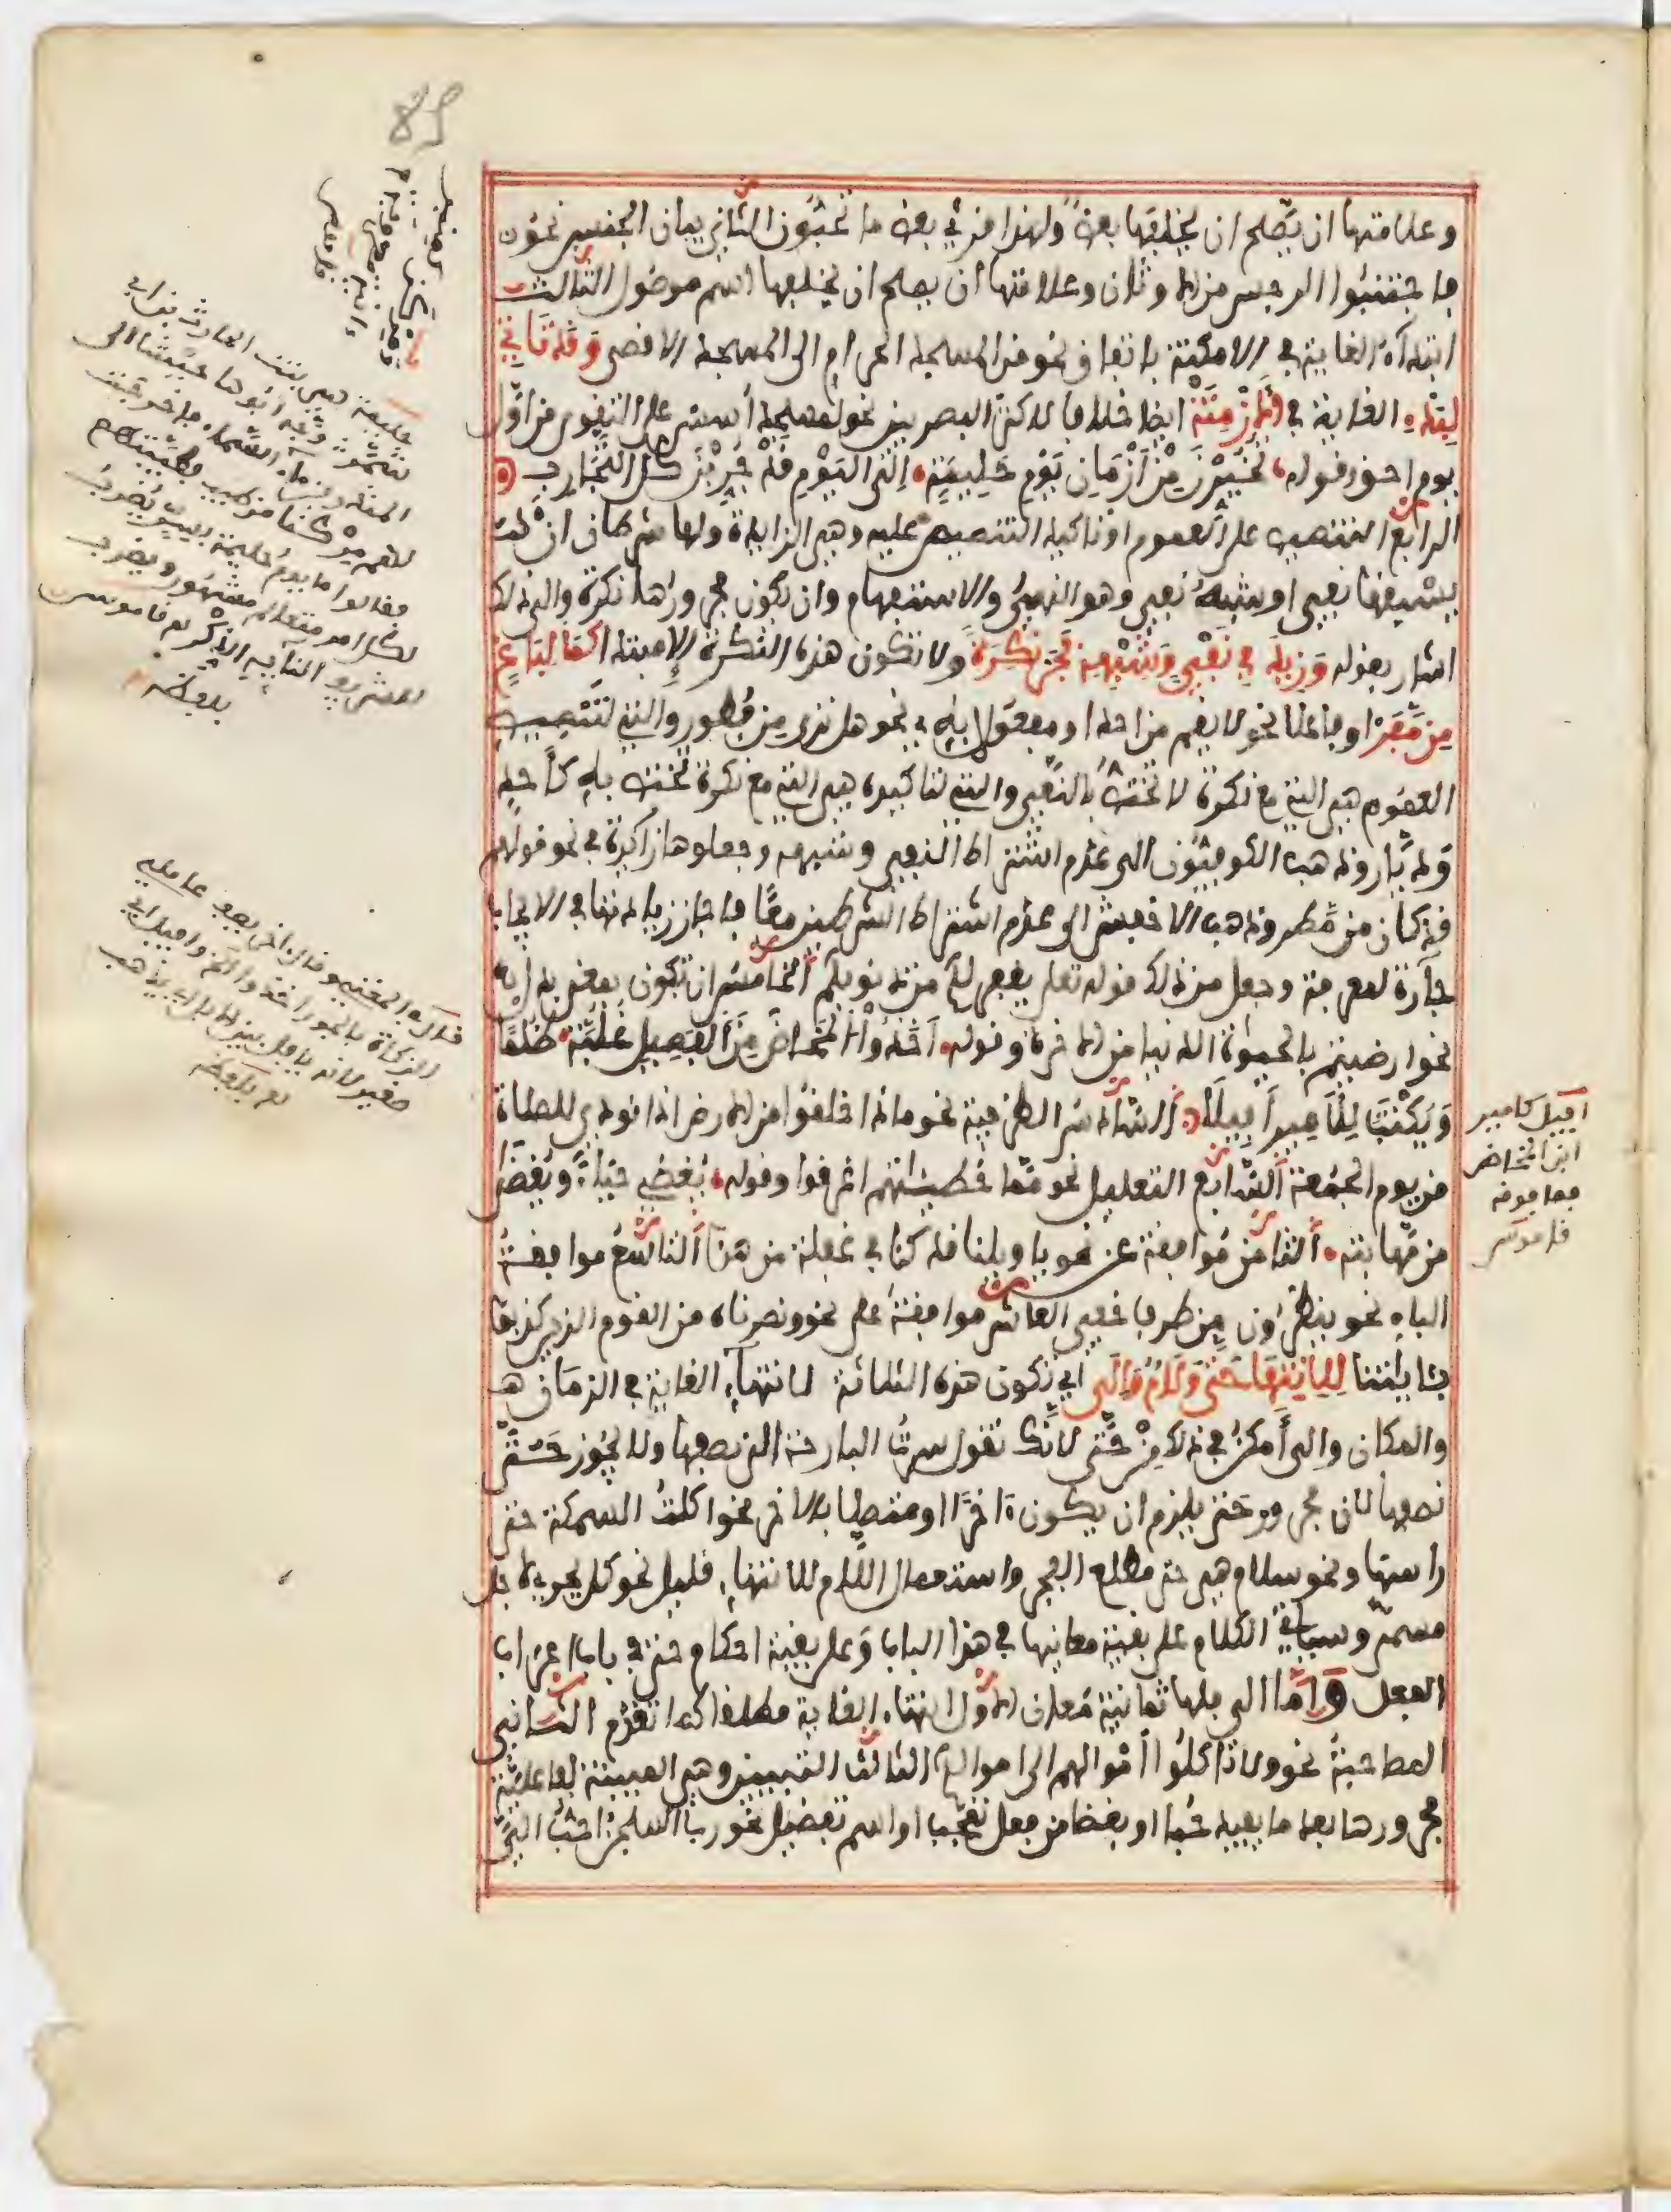 وعلامتها ان يصلح ان يخلفها بعض ولهذا قرئ بعض ما تحبون الثاني بيان الجنس نحو
فاجتنبوا الرجس من الاوثان وعلامتها ان يصلح ان يخلفها اسم موصول الثالث
ابتداء الغاية في الامكنة باتفاق نحو من المسجد الحرام الى المسجد الاقصى وقد تاتي
لبدء الغاية في الازمنة ايضا خلافا لاكثر البصريين نحو لمسجد أسس على التقوى من أول
يوم احق وقوله تُخُيِّرْنَ مِنْ أَزْمَانِ يَوْمِ حَلِيمَةٍ إلى اليَوْمِ قَدْ جُرِّبْنَ كل التَّجَارِبِ
الرابع التنصيص على العموم او تاكيد التنصيص عليه وهي الزايدة ولها شرطان ان
يسبقها نفي او شبه نفي وهو النهي والاستفهام وان يكون مجرورها نكرة والى ذلك
اشار بقوله وَزِيدَ فِي نَفْيٍ وَشِبْهِهِ فَجَرّ نَكِرَةً ولا تكون هذه النكرة الا مبتدا كَمَا لِبَاغٍ
مِن مَفَرّ او فاعلا نحو لا يقم من احد او مفعولا به نحو هل ترى من فطور والتي لتنصيص
العموم هي التي مع نكرة لا تختص بالنفي والتي لتاكيده هي التي مع نكرة تختص به كأحد
وديّار وذهب الكوفيون الى عدم اشتراط النفي وشبهه وجعلوها زائدة في نحو قولهم
قد كان من مطر وذهب الاخفش الى عدم اشتراط الشرطين معا فاجاز زيادتها في الايجاب
جارة لمعرفة وجعل من ذلك قوله تعلى يغفر لكم من ذنوبكم الخامس ان تكون بمعنى بدل
نحو ارضيتم بالحيوة الدنيا من الاخرة وقوله أخذوا المخاض من الفصيل غلبّة ظلما
ويكتب للامير أفيلا السادس الظرفية نحو ماذا خلقوا من الارض اذا نودي للصلاة
من يوم الجمعة السابع التعليل نحو مما خطيئاتهم اغرقوا وقوله يُغضي حياءً ويُغضى
من مهابته الثامن موافقة عن نحو يا ويلنا قد كنا في غفلة من هذا التاسع موافقة
الباء نحو ينظرون من طرف خفي العاشر موافقة على نحو ونصرناه من القوم الذين كذبوا
بئاياتنا للانتها حتى ولام وإلى أي تكون هذه الثلاثة لانتهاء الغاية في الزمان
والمكان والى أمكن في ذلك من حتى لانك تقول سرت البارحة الى نصفها ولا يجوز حتى
نصفها لان مجرور حتى يلزم ان يكون ءاخرا او متصلا بالاخر نحو اكلت السمكة حتى
راسها ونحو سلام هي حتى مطلع الفجر واستعمال اللام للانتهاء قليل نحو كل يجري لاجل
مسمى وسياتي الكلام على بقية معانيها في هذا الباب وعلى بقية احكام حتى في باب اعراب
الفعل وأما الى فلها ثمانية معان الاول انتهاء الغاية مطلقا كما تقدم الثاني
المصاحبة نحو ولا تاكلوا أموالهم الى اموالكم الثالث التبيين وهي المبينة لفاعلية
مجرورها بعد ما يفيد حبا او بغضا من فعل تعجب او اسم تفضيل نحو رب السجن احب الي
حليمة هي بنت الحارث بن ابي
شمر وجه ابوها جيشا الى
المنذر بن ماء السماء فاخرجت
لهم مركنا من طيب فطيبتهم
فقالوا ما يوم حليمة بسر يضرب
لكل امر متعالم مشهور ويضرب
للشريف النابه الذكر هـ قاموس
بلفظه
قاله في المغني وقال
الزكاة
صغير لانه
هـ بلفظه
افيل كامير
ابن المخاض
فما فوقه
قاموس